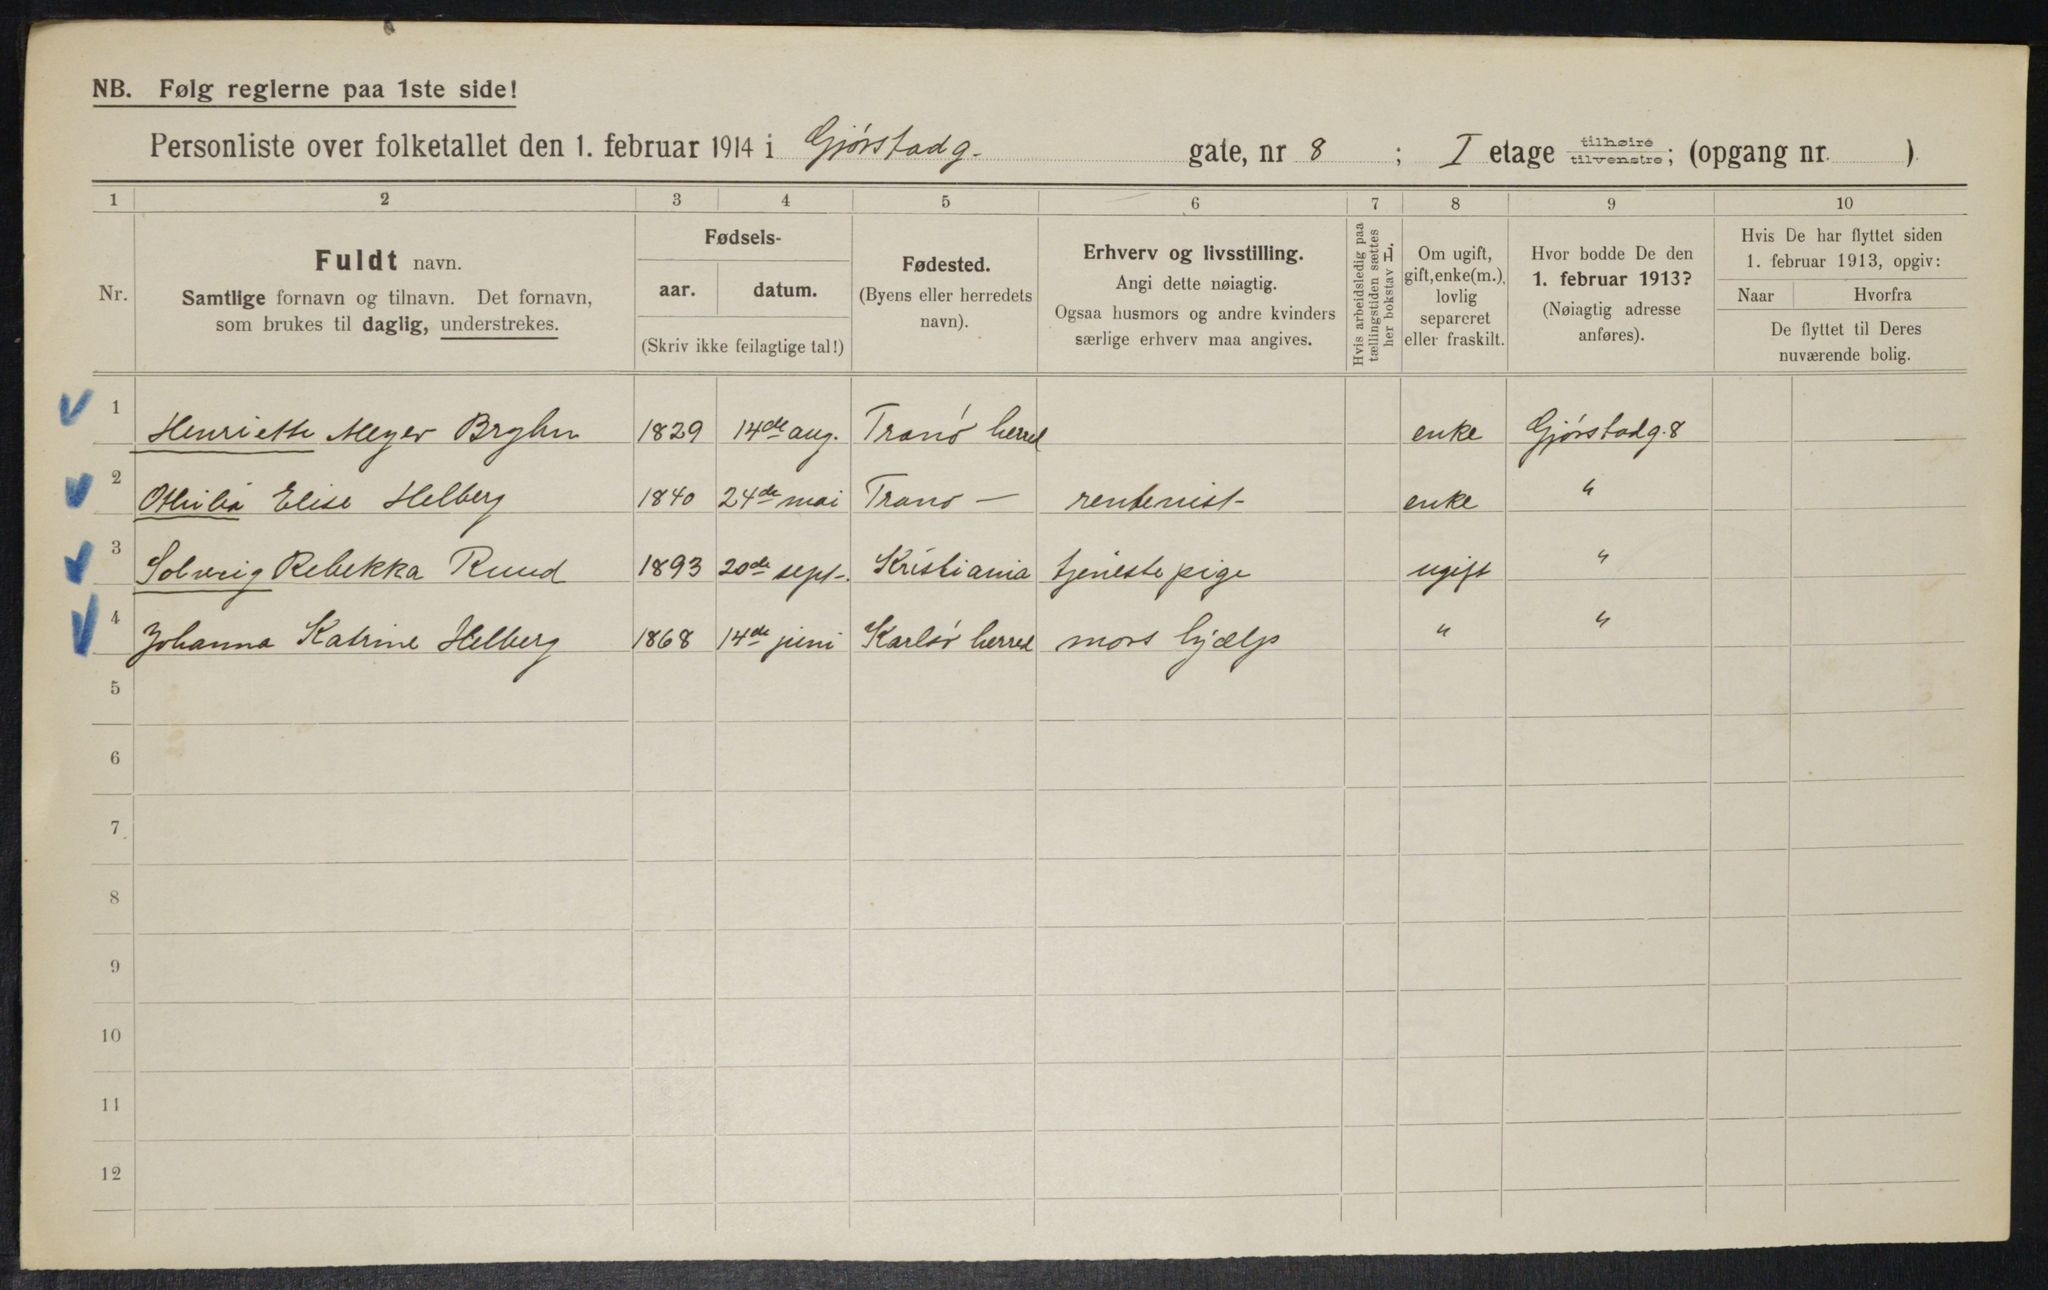 NB. Følg reglerne paa 1ste side!
Personliste over folketallet den 1. februar 1914 i Gjørstadg. gate, nr 8 ; I etage tilhøire tilvenstre; (opgang nr. )
1 2 3 4 5 6 7 8 9 10
Nr.
Fuldt navn.
Samtlige fornavn og tilnavn. Det fornavn,
som brukes til daglig, understrekes.
Fødsels-
aar. datum.
(Skriv ikke feilagtige tal!)
Fødested.
(Byens eller herredets
navn).
Erhverv og livsstilling.
Angi dette nøiagtig.
Ogsaa husmors og andre kvinders
særlige erhverv maa angives.
Hvis arbeidsledig paa
tællingstiden sættes
her bokstav L.
Om ugift,
gift, enke(m.),
lovlig
separeret
eller fraskilt.
Hvor bodde De den
1. februar 1913?
(Nøiagtig adresse
anføres).
Hvis De har flyttet siden
1. februar 1913, opgiv:
Naar Hvorfra
De flyttet til Deres
nuværende bolig.
1 Henriette Meyer Bryhn 1829 14de aug. Tranø herred enke Gjørstadg. 8
2 Othilia Elise Helberg 1840 24de mai Tranø — rentenist enke "
3 Solveig Rebekka Ruud 1893 20de sept. Kristiania tjenestepige ugift "
4 Johanna Katrine Helberg 1868 14de juni Karlsø herred mors hjælp " "
5
6
7
8
9
10
11
12